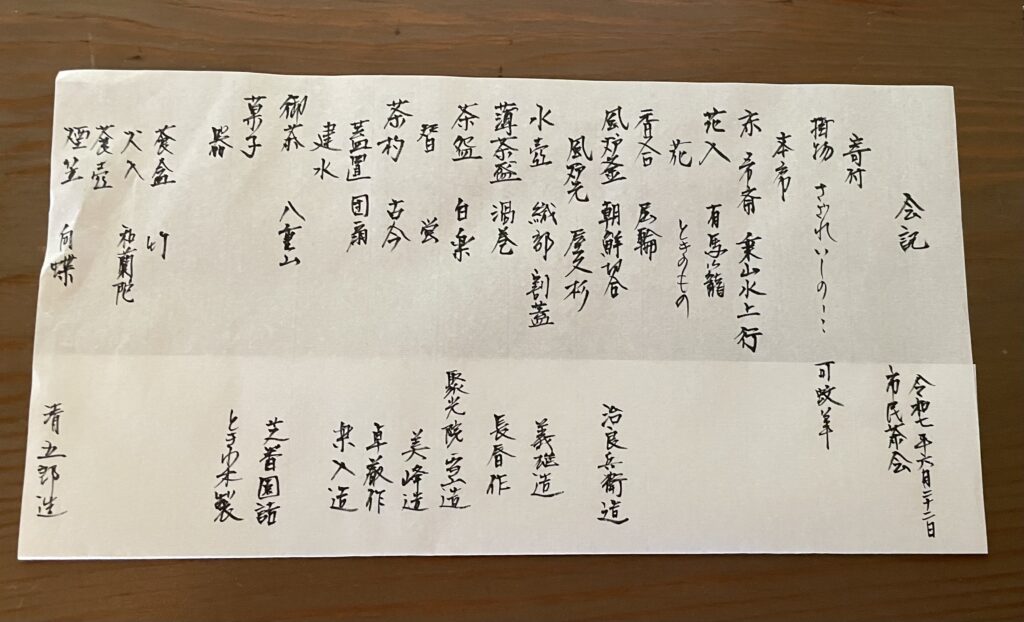 会記
令和七年六月二十二日
市民茶会
寄付
掛物 さゞれいしの…
本席
床 東山水上行
花入 有馬籠
花 ときのもの
香合
風炉釜 朝鮮切合 治良兵衛造
風炉先 屋久杉
水壺 織部 割蓋 義雄造
薄茶器 渦巻 長春作
茶盌 白楽 聚光院 造
替 蛍 美峰造
茶杓 古今 卓巌作
蓋置 団扇 楽入造
建水
御茶 八重山 芝香園詰
菓子 ときわ木製
器
莨盆
火入 和蘭陀
莨壺
煙管 向蝶 清五郎造